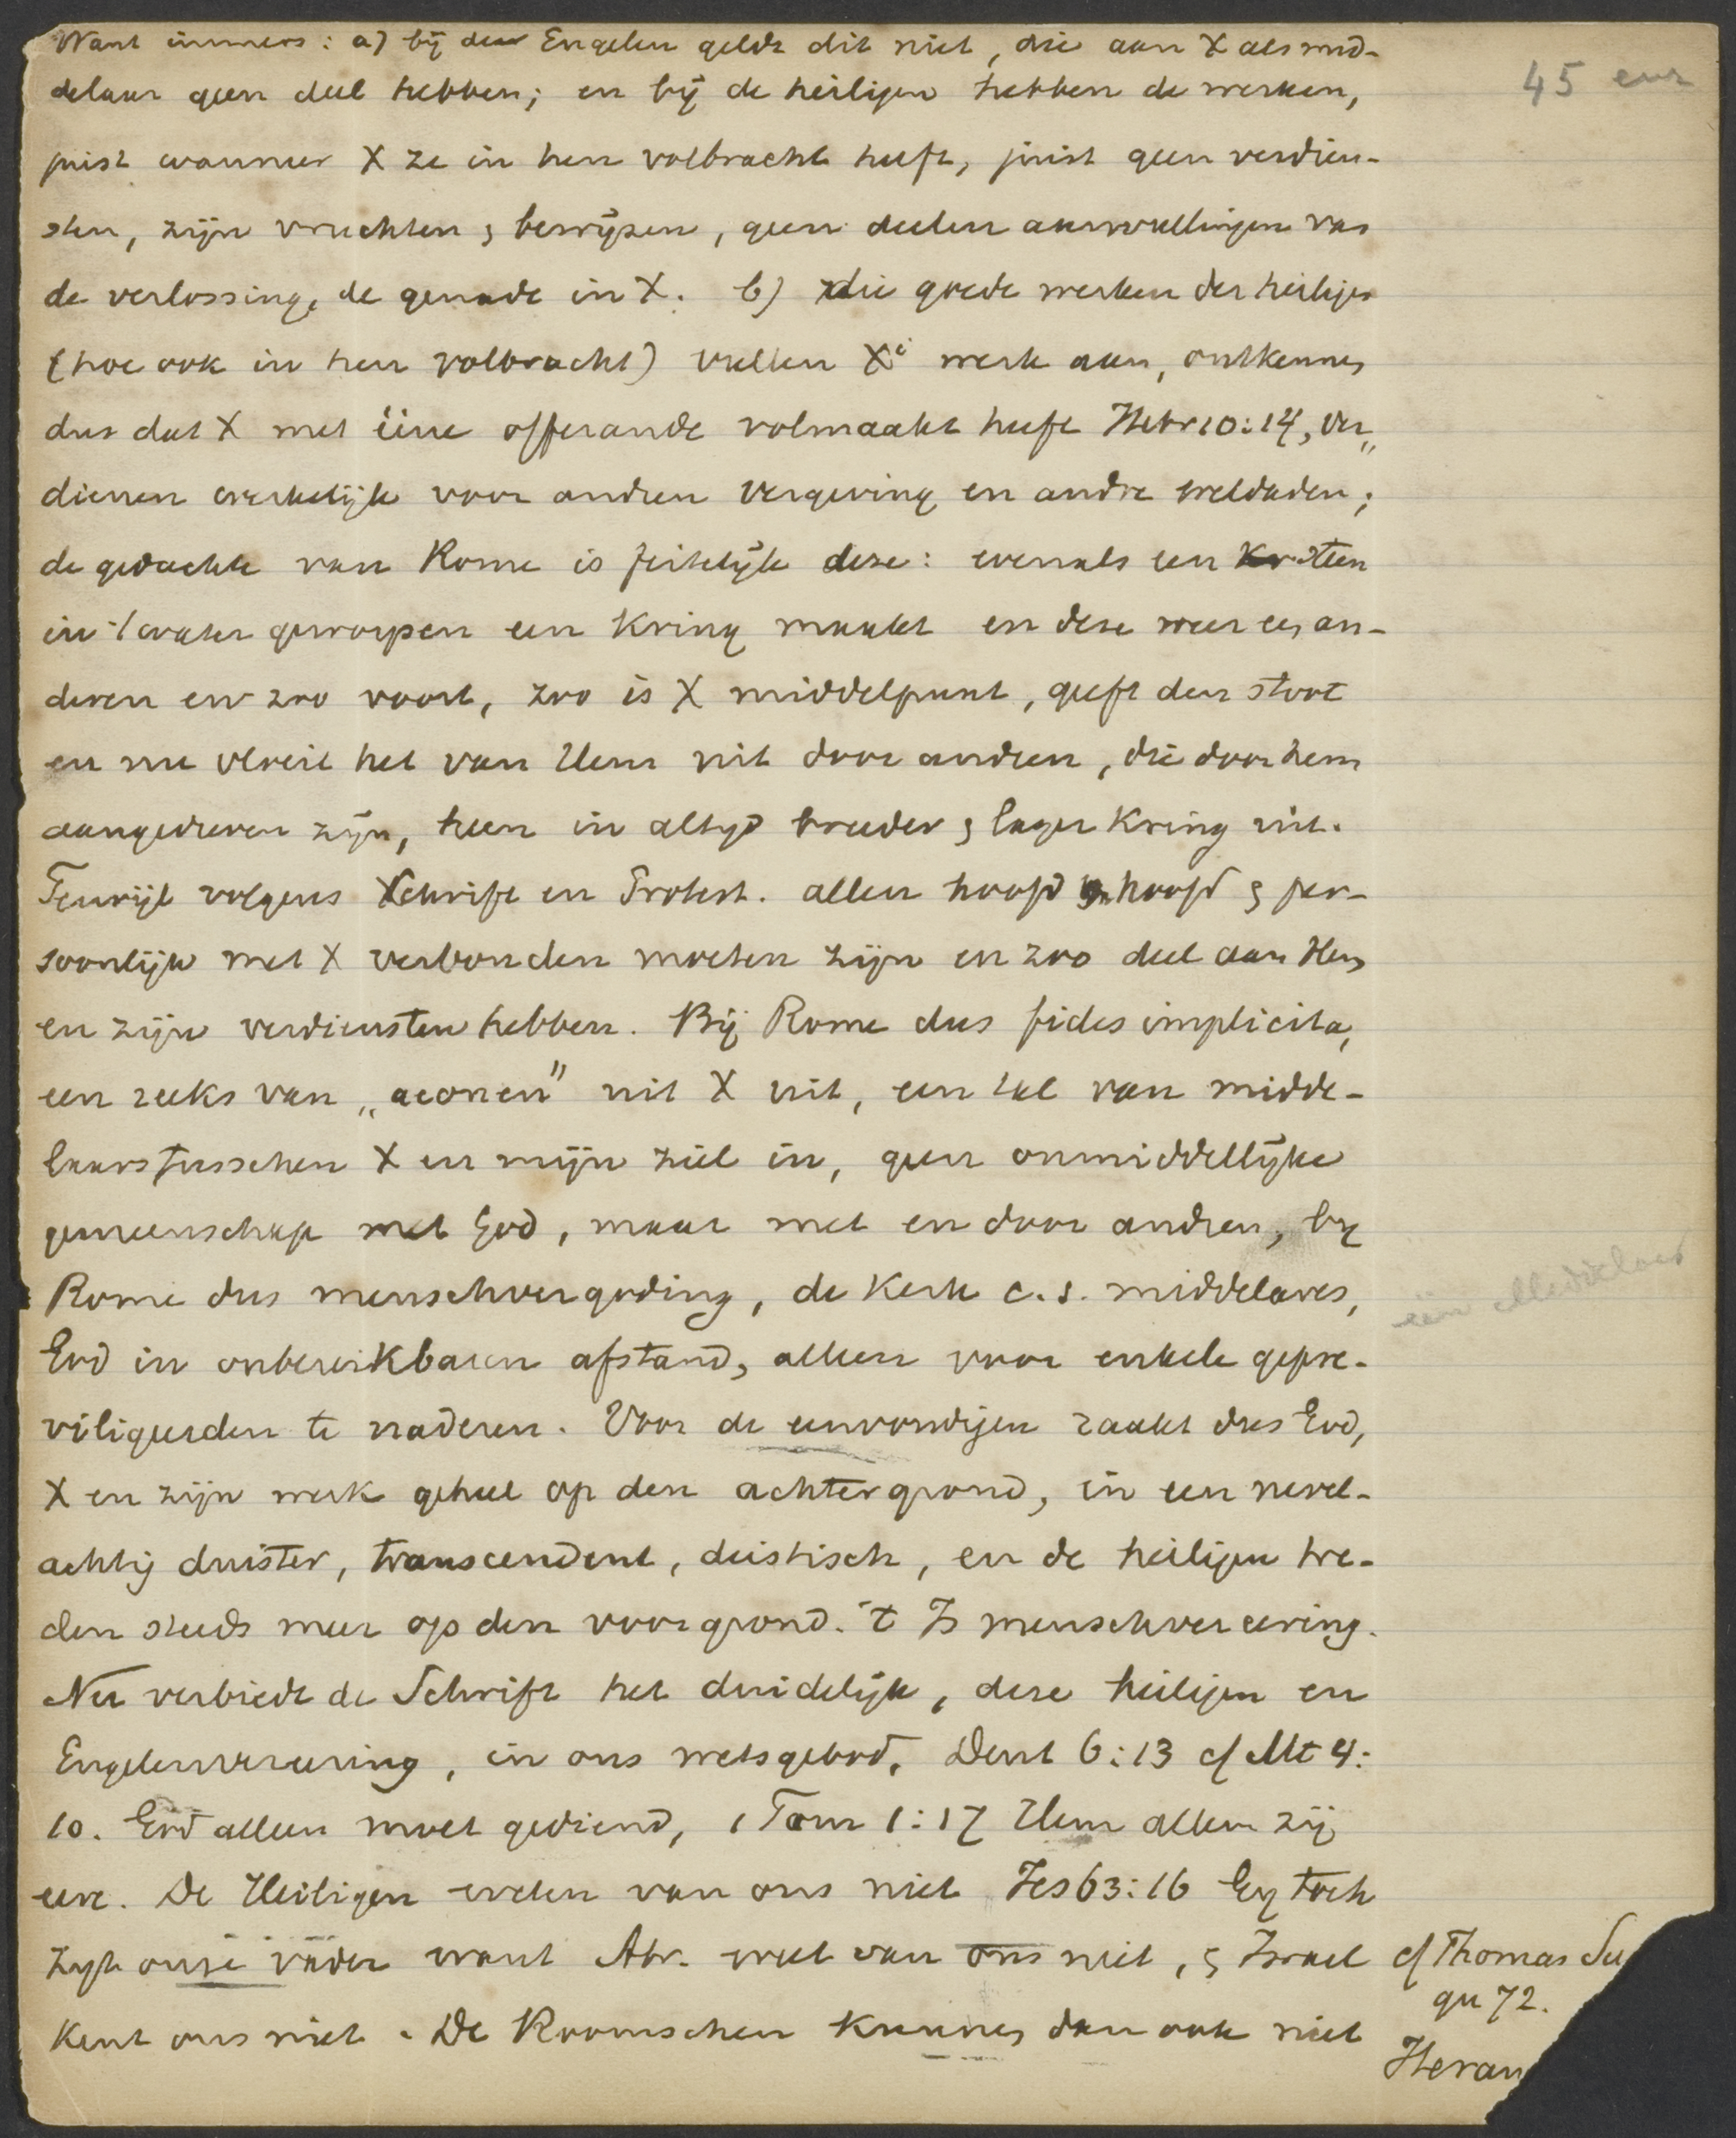 Want immers: a) bij den Engelen geldt dit niet, die aan X als mid-
45 eur
delaar geen deel hebben; en bij de heiligen hebben de werken,
juist wanneer X ze in hen volbracht heeft, juist geen verdien-
sten, zijn vruchten & bewijzen, geen deelen aanvullingen van
de verlossing, de genade in X. b) die goede werken der heiligen
(hoe ook in hen volbracht) vullen Xi werk aan, ontkennen
dus dat X met ééne offerande volmaakt heeft Hebr 10:14, ver„
dienen werkelijk voor andren vergeving en andre weldaden;
de gedachte van Rome is feitelijk deze: evenals een steen
in 't water geworpen een kring maakt en deze weer een an-
deren en zoo voort, zoo is X middelpunt, geeft den stoot
en nu vloeit het van Hem uit door andren, die door hem
aangedreven zijn, heen in altijd breeder & lager kring uit.
Terwijl volgens Schrift en Protest. allen hoofd voor hoofd & per-
soonlijk met X verbonden moeten zijn en zoo deel aan Hem
en zijn verdiensten hebben. Bij Rome dus fides implicita,
een reeks van „aeonen" uit X uit, een tal van midde-
laars tusschen X en mijn ziel in, geen onmiddellijke
gemeenschap met God, maar met en door andren, bij
Rome dus menschvergoding, de Kerk c.s. middelares,
één Middelaar
God in onbereikbaren afstand, alleen voor enkele gepre-
viligeerden te naderen. Voor de eenvoudigen raakt dus God,
X en zijn werk geheel op den achtergrond, in een nevel-
achtig duister, transcendent, deistisch, en de heiligen tre-
den steeds meer op den voorgrond. 't Is menschvereering.
Nu verbiedt de Schrift het duidelijk, deze heiligen en
Engelenvereering, in ons wetsgebod, Deut 6:13 cf Mt 4:
10. God alleen moet gediend, 1 Tim 1:17 Hem alleen zij
eere. De Heiligen weten van ons niet Jes 63:16 Gij toch
zijt onze vader want Abr. weet van ons niet, & Israel
kent ons niet. De Roomschen kunnen dan ook niet
cf Thomas Su
qu 72.
Heran